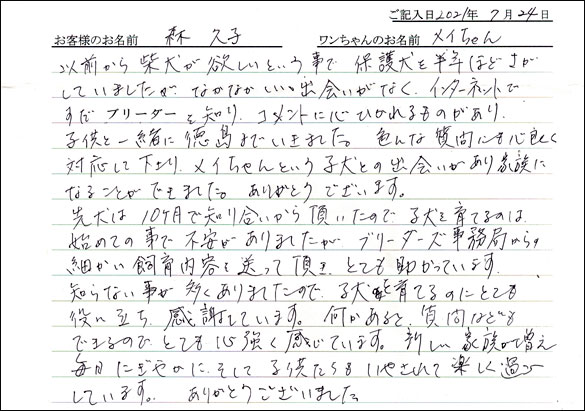 ご記入日2021年 7月24日
お客様のお名前 森 久子 ワンちゃんのお名前 メイちゃん
以前から柴犬が欲しいという事で 保護犬を半年ほどさが
していましたが、なかなかいい出会いがなく、インターネットで
すだブリーダーを知り、コメントに心ひかれるものがあり、
子供と一緒に徳島までいきました。色んな質問にも心良く
対応して下さり、メイちゃんという子犬との出会いがあり家族に
なることができました。ありがとうございます。
先犬は10ヶ月で知り合いから頂いたので子犬を育てるのは、
始めての事で不安がありましたが、ブリーダーズ事務局からの
細かい飼育内容を送って頂き、とても助かっています。
知らない事が多くありましたので、子犬を育てるのにとても
役に立ち、感謝しています。何かあると、質問なども
できるので、とても心強く感じています。新しい家族が増え
毎日にぎやかに、そして子供たちもいやされて楽しく過ご
しています。 ありがとうございました